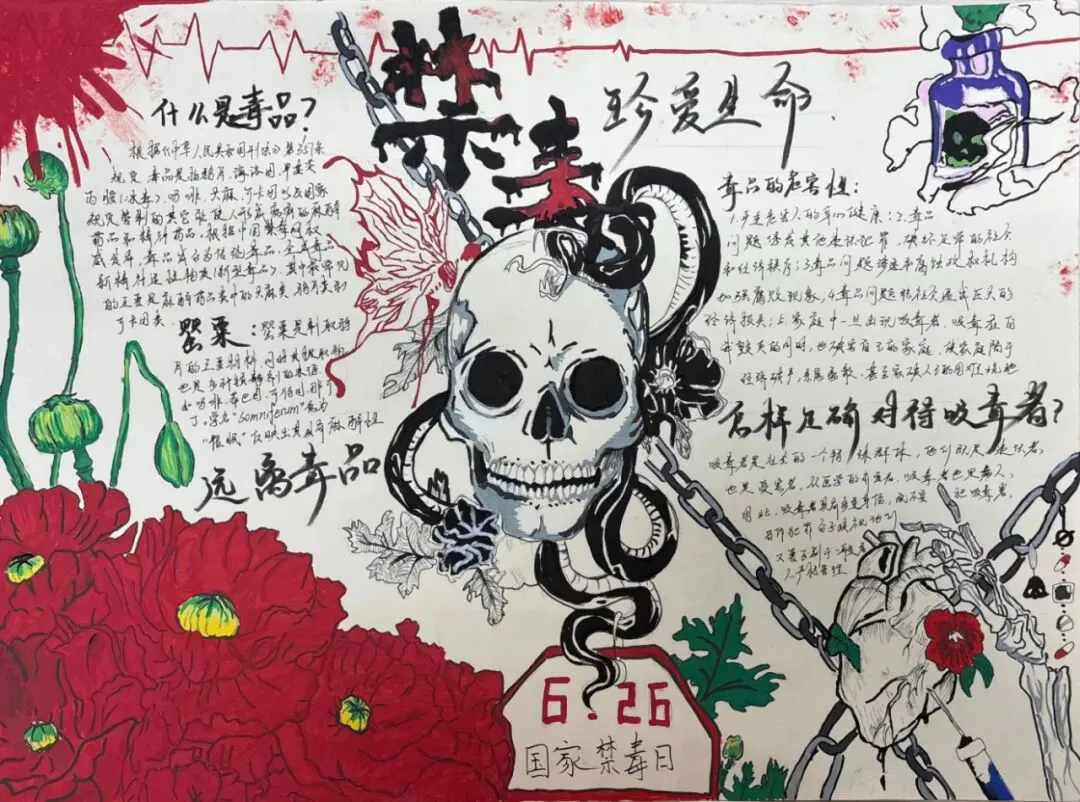 禁毒
珍爱生命.
什么是毒品？
根据《中华人民共和国刑法》第357条
规定,毒品是指鸦片、海洛因、甲基苯
丙胺(冰毒)、吗啡、大麻、可卡因以及国家
规定管制的其它能使人形成瘾癖的麻醉
药品和精神药品。根据中国禁毒网权
威发布,毒品分为传统毒品、合成毒品
新精神活性物质(新型毒品)。其中最常见
的主要是麻醉药品类中的大麻类、鸦片类和
可卡因类。
罂粟：罂粟是制取鸦
片的主要原料,同时其提取物
也是多种镇静剂的来源,
如吗啡、蒂巴因、可待因、那
丁。学名"somniferum"意为
"催眠"反映出其具有麻醉性
远离毒品
毒品的危害性：
1.严重危害人的身心健康；2.毒品
问题诱发其他违法犯罪,破坏正常的社会
和经济秩序；3.毒品问题渗透和腐蚀政权机构
加强腐败现象；4.毒品问题给社会造成巨大的
经济损失；5.家庭中一旦出现吸毒者,吸毒在自
我毁灭的同时,也破害自己的家庭,使家庭陷于
经济破产、亲属离散、甚至家破人亡的困难境地
怎样正确对待吸毒者？
吸毒者是社会的一个特殊群体,他们既是违法者,
也是受害者,从医学的角度看,吸毒者也是病人,
因此,吸毒者具有
6.26
国家禁毒日